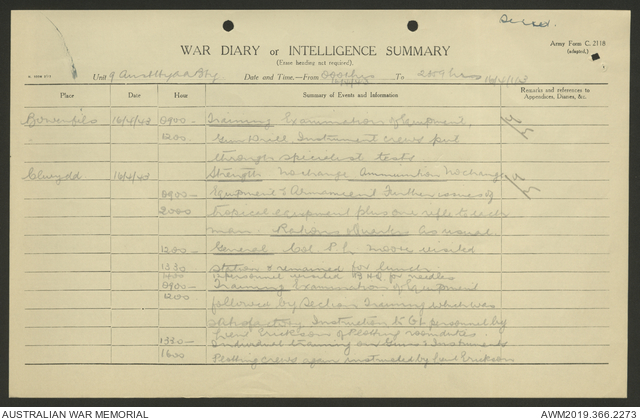 WAR DIARY or INTELLIGENCE SUMMARY
(Erase heading not required).
Army Form C. 2118
(adapted.)
Unit 9 Aust Hy AA Bty Date and Time.—From 0001 hrs To 2359 hrs 16/4/43
Place Date Hour Summary of Events and Information Remarks and references to Appendices, Diaries, &c.
Bowenfels 16/4/43 0900- Training Examination of Equipment,
1200 Gun Drill Instrument crews put
through specialist tests
Clwydd 16/4/43 Strength No change Ammunition No change
0900- Equipment & Armament Further issues of
2000 tropical equipment plus one rifle to each
man. Rations & Quarters As usual.
1200- General Col P. L. Moore visited
1330 station & remained for lunch
1400 personnel visited HQ for needles
0900- Training Examination of Equipment
1200 followed by Section Training which was
satisfactory Instruction to GL personnel by
Lieut Erickson of Plotting room duties.
1330- Individual training on Guns & Instruments
1600 Plotting crews again instructed by Lieut Erickson
AUSTRALIAN WAR MEMORIAL
AWM2019.366.2273